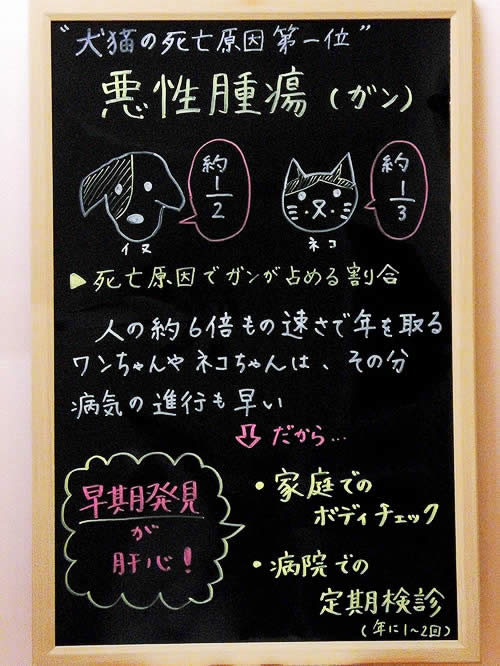 "犬猫の死亡原因第一位"
悪性腫瘍(ガン)
約1/2
約1/3
イヌ
ネコ
▶死亡原因でガンが占める割合
人の約6倍もの速さで年を取る
ワンちゃんやネコちゃんは、その分
病気の進行も早い
⇩だから…
早期発見
が
肝心!
・家庭での
ボディチェック
・病院での
定期検診
(年に1~2回)